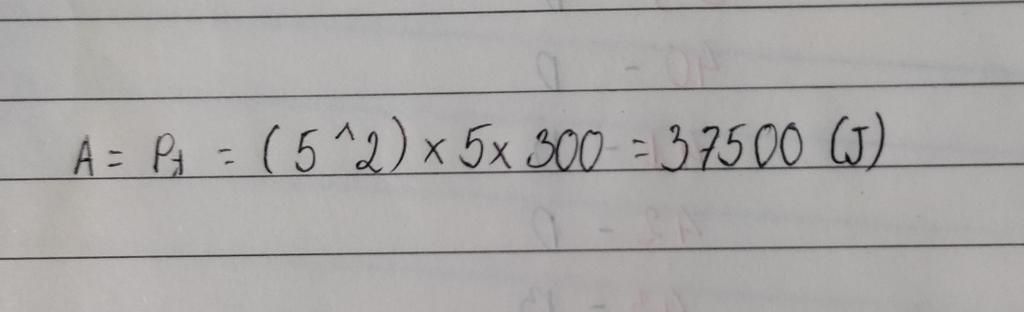 A = Pt = (5^2) × 5 × 300 = 37500 (J)